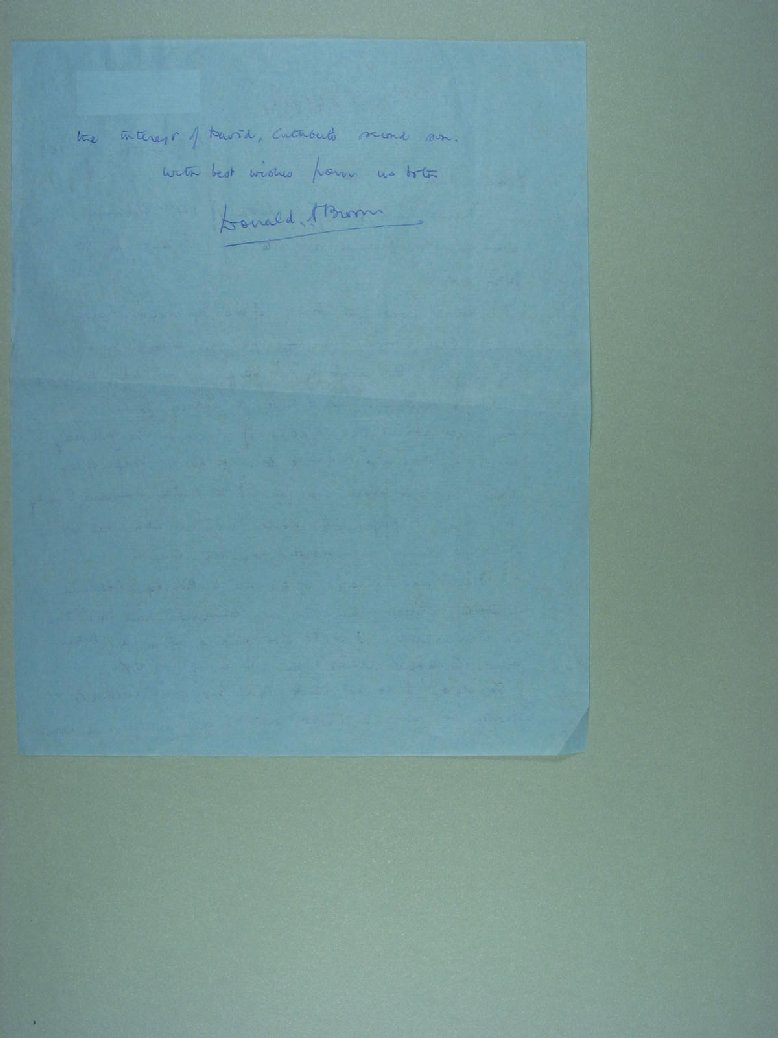 the interest of David, Cuthbert's second son.
With best wishes from us both
Donald. A Brown